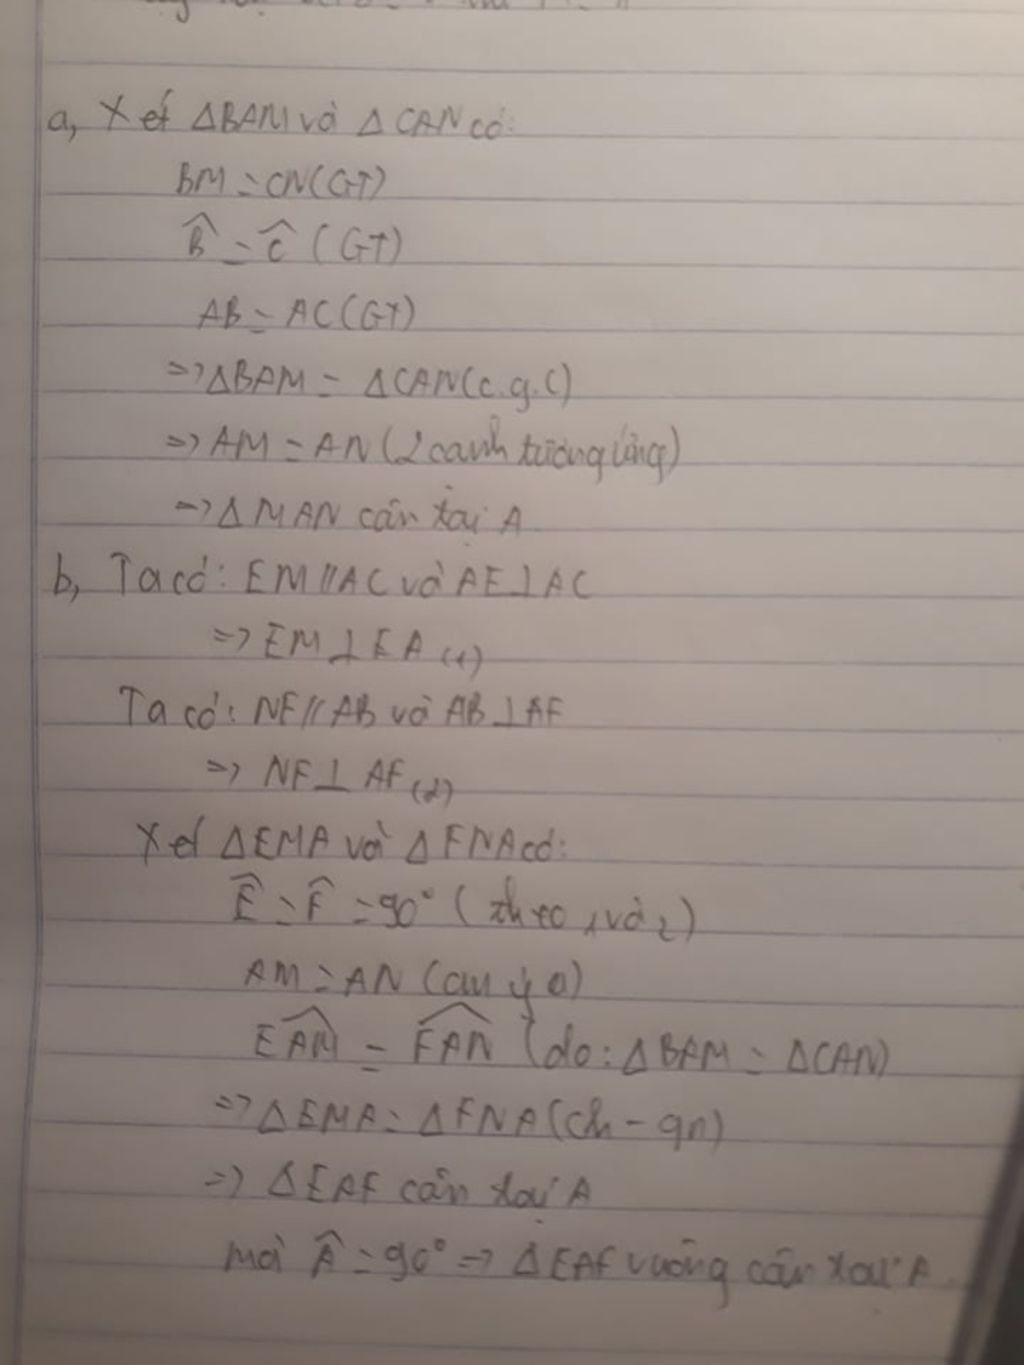 a, Xét ΔBAM và ΔCAN có:
BM = CN (GT)
B̂ = Ĉ (GT)
AB = AC (GT)
=> ΔBAM = ΔCAN (c.g.c)
=> AM = AN (2 cạnh tương ứng)
=> ΔMAN cân tại A
b, Ta có: EM // AC và AE ⊥ AC
=> EM ⊥ EA (1)
Ta có: NF // AB và AB ⊥ AF
=> NF ⊥ AF (2)
Xét ΔEMA và ΔFNA có:
Ê = F̂ = 90° (theo 1 và 2)
AM = AN (cm ý a)
EÂM = FÂN (do: ΔBAM = ΔCAN)
=> ΔEMA = ΔFNA (ch - gn)
=> ΔEAF cân tại A
mà Â = 90° => ΔEAF vuông cân tại A